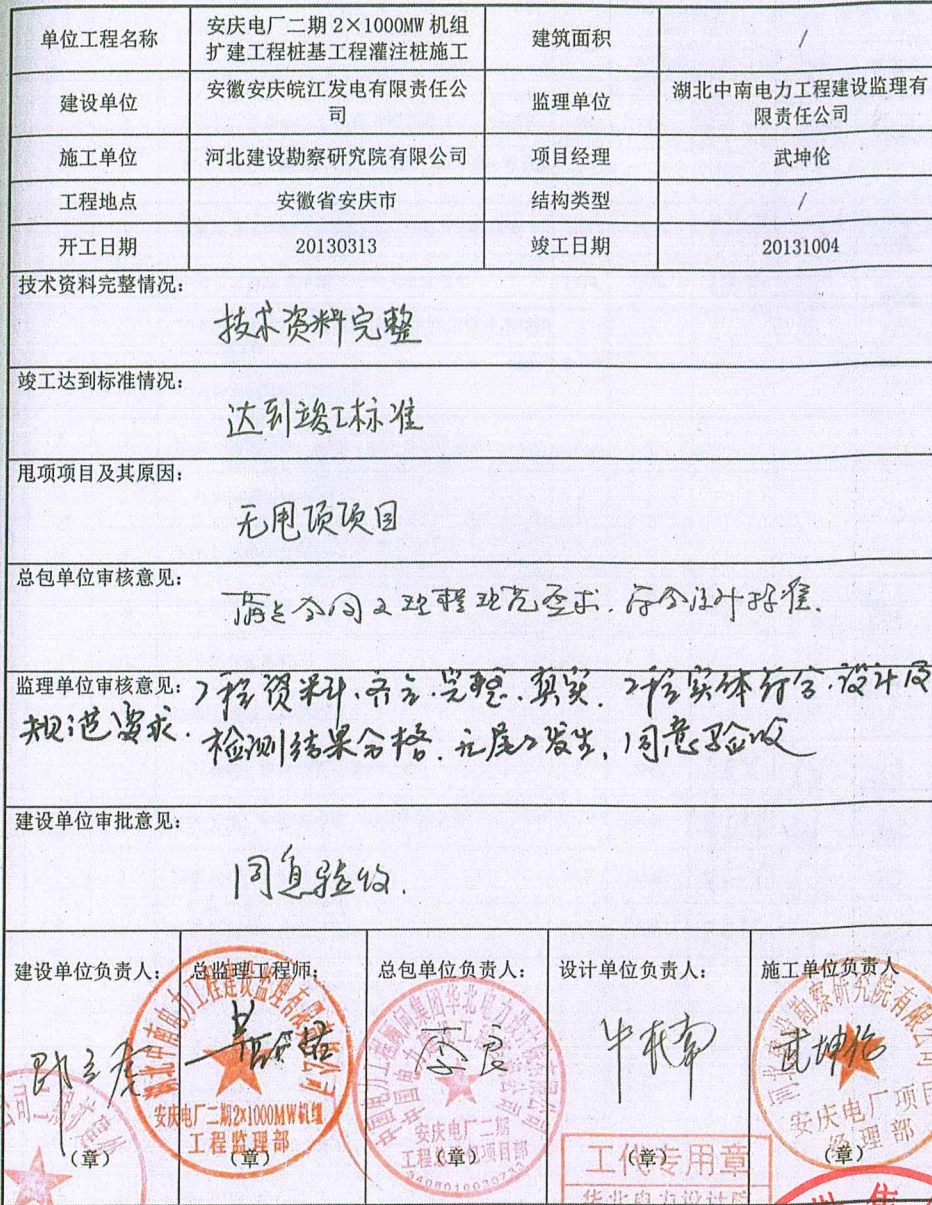 单位工程名称
安庆电厂二期 2×1000MW 机组
扩建工程桩基工程灌注桩施工
建筑面积
/
建设单位
安徽安庆皖江发电有限责任公
司
监理单位
湖北中南电力工程建设监理有
限责任公司
施工单位
河北建设勘察研究院有限公司
项目经理
武坤伦
工程地点
安徽省安庆市
结构类型
/
开工日期
20130313
竣工日期
20131004
技术资料完整情况：
技术资料完整
竣工达到标准情况：
达到竣工标准
甩项项目及其原因：
无甩项项目
总包单位审核意见：
满足合同及规程规范要求，符合设计标准。
监理单位审核意见：
工程资料齐全、完整、真实。工程实体符合设计及
规范要求。检测结果合格，无尾工发生，同意验收
建设单位审批意见：
同意验收。
建设单位负责人：
总监理工程师：
总包单位负责人：
设计单位负责人：
施工单位负责人
李良
武坤伦
湖北中南电力工程建设监理有限责任公司
安庆电厂二期2×1000MW机组
工程监理部
安庆电厂二期
工程总承包项目部
河北建设勘察研究院有限公司
安庆电厂项目
经理部
工代专用章
华北电力设计院
（章）
（章）
（章）
（章）
（章）